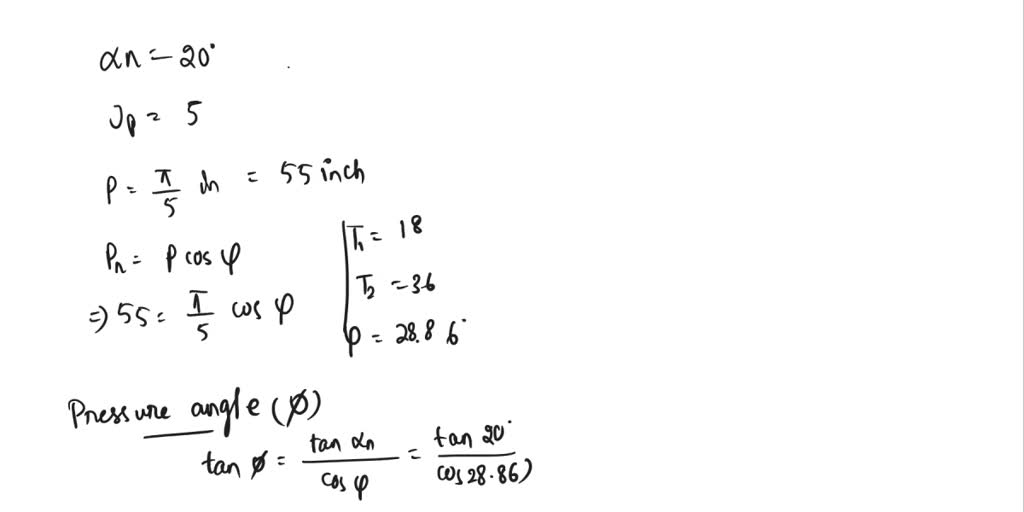 αn = 20°
Jp = 5
P = π/5 in = 55 inch
Pn = P cos φ
⇒ 55 = π/5 cos φ
T1 = 18
T2 = 36
φ = 28.86°
Pressure angle (ϕ)
tan ϕ = tan αn / cos φ = tan 20° / cos 28.86)